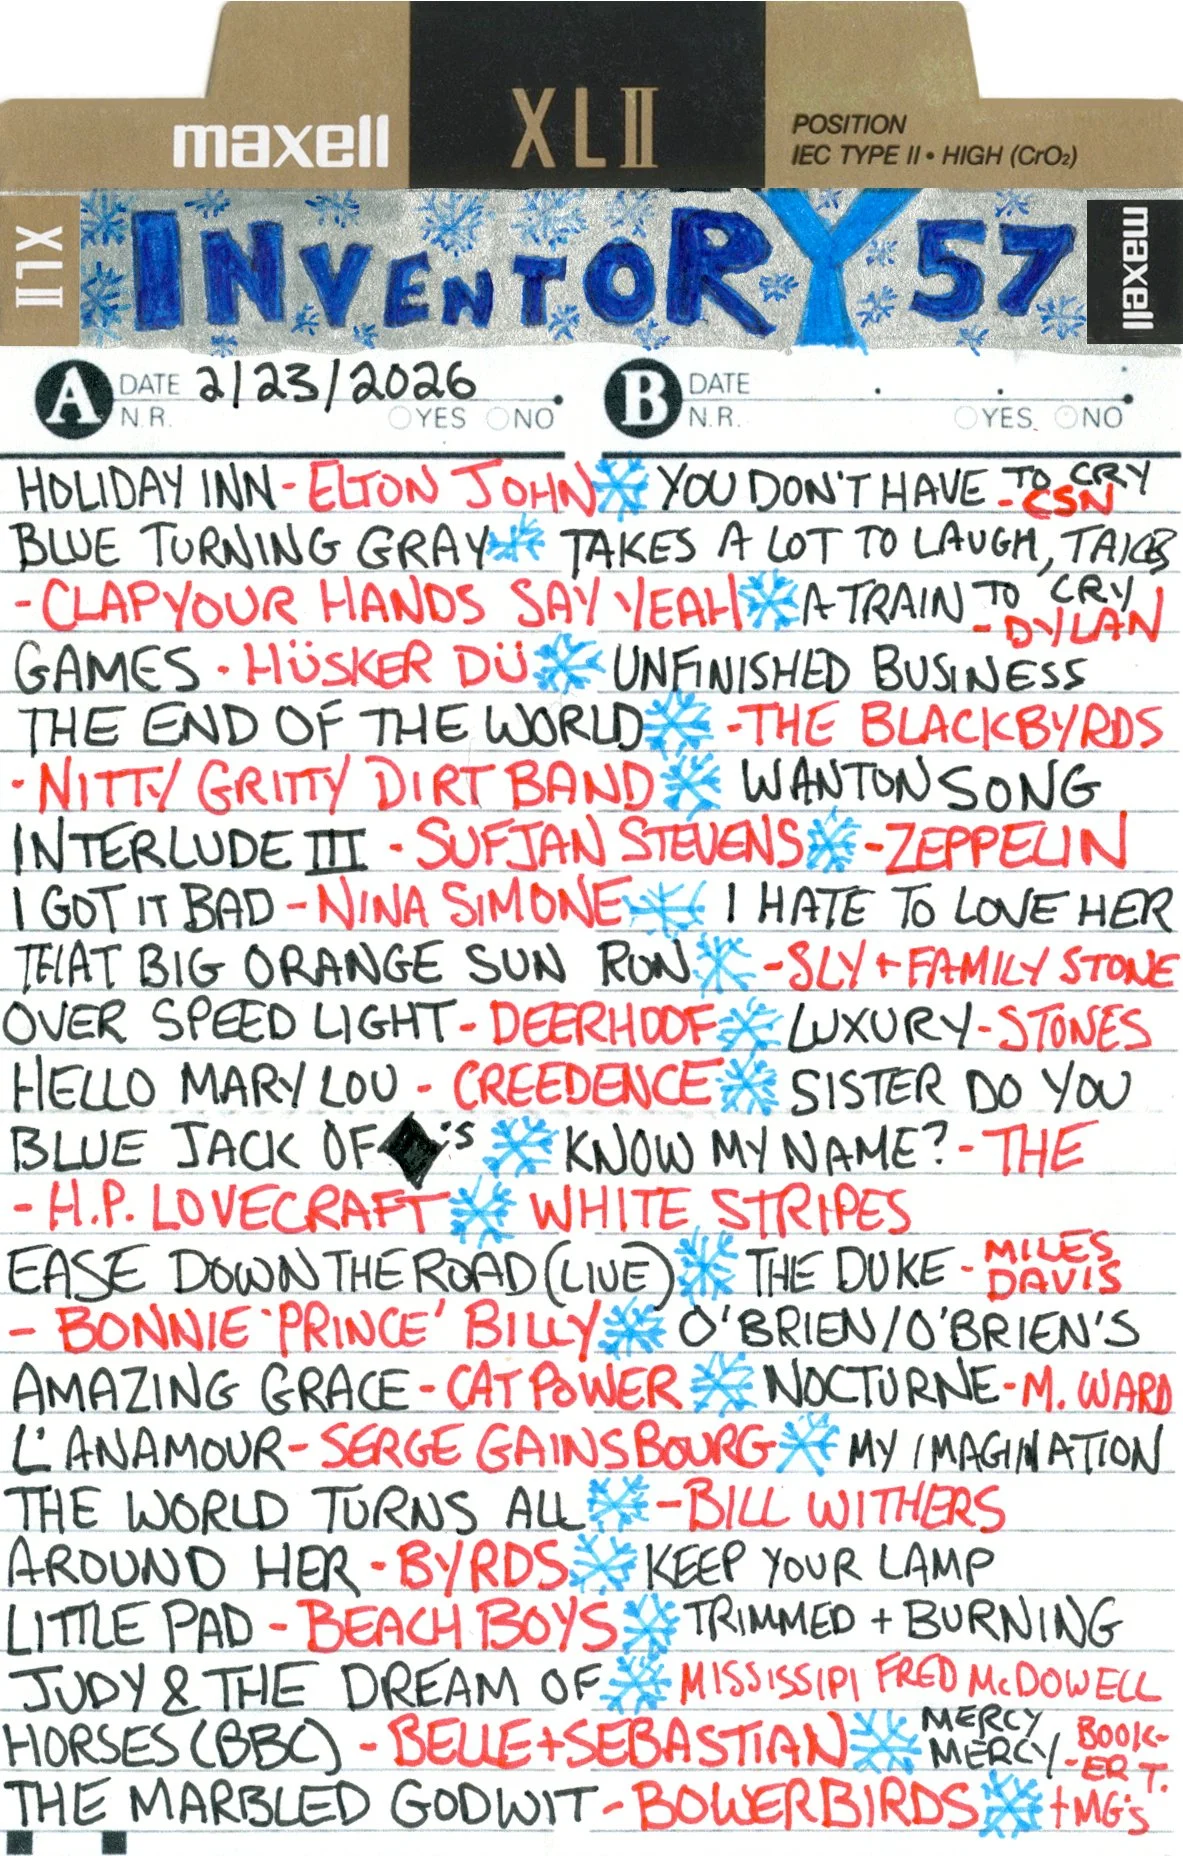 maxell
XLII
POSITION
IEC TYPE II • HIGH (CrO₂)
XLII
INVENTORY 57
maxell
A DATE 2/23/2026
N.R. YES NO
B DATE
N.R. YES NO
HOLIDAY INN - ELTON JOHN
BLUE TURNING GRAY
- CLAP YOUR HANDS SAY YEAH
GAMES - HÜSKER DÜ
THE END OF THE WORLD
- NITTY GRITTY DIRT BAND
INTERLUDE III - SUFJAN STEVENS
I GOT IT BAD - NINA SIMONE
THAT BIG ORANGE SUN RUN
OVER SPEED LIGHT - DEERHOOF
HELLO MARY LOU - CREEDENCE
BLUE JACK OF ♦'S
- H.P. LOVECRAFT
EASE DOWN THE ROAD (LIVE)
- BONNIE 'PRINCE' BILLY
AMAZING GRACE - CAT POWER
L'ANAMOUR - SERGE GAINSBOURG
THE WORLD TURNS ALL
AROUND HER - BYRDS
LITTLE PAD - BEACH BOYS
JUDY & THE DREAM OF
HORSES (BBC) - BELLE + SEBASTIAN
THE MARBLED GODWIT - BOWERBIRDS
YOU DON'T HAVE TO CRY
- CSN
TAKES A LOT TO LAUGH, TAKES
A TRAIN TO CRY
- DYLAN
UNFINISHED BUSINESS
- THE BLACKBYRDS
WANTON SONG
- ZEPPELIN
I HATE TO LOVE HER
- SLY + FAMILY STONE
LUXURY - STONES
SISTER DO YOU
KNOW MY NAME? - THE
WHITE STRIPES
THE DUKE - MILES
DAVIS
O'BRIEN/O'BRIEN'S
NOCTURNE - M. WARD
MY IMAGINATION
- BILL WITHERS
KEEP YOUR LAMP
TRIMMED + BURNING
MISSISSIPI FRED McDOWELL
MERCY
MERCY - BOOK-
ER T.
+ MG's